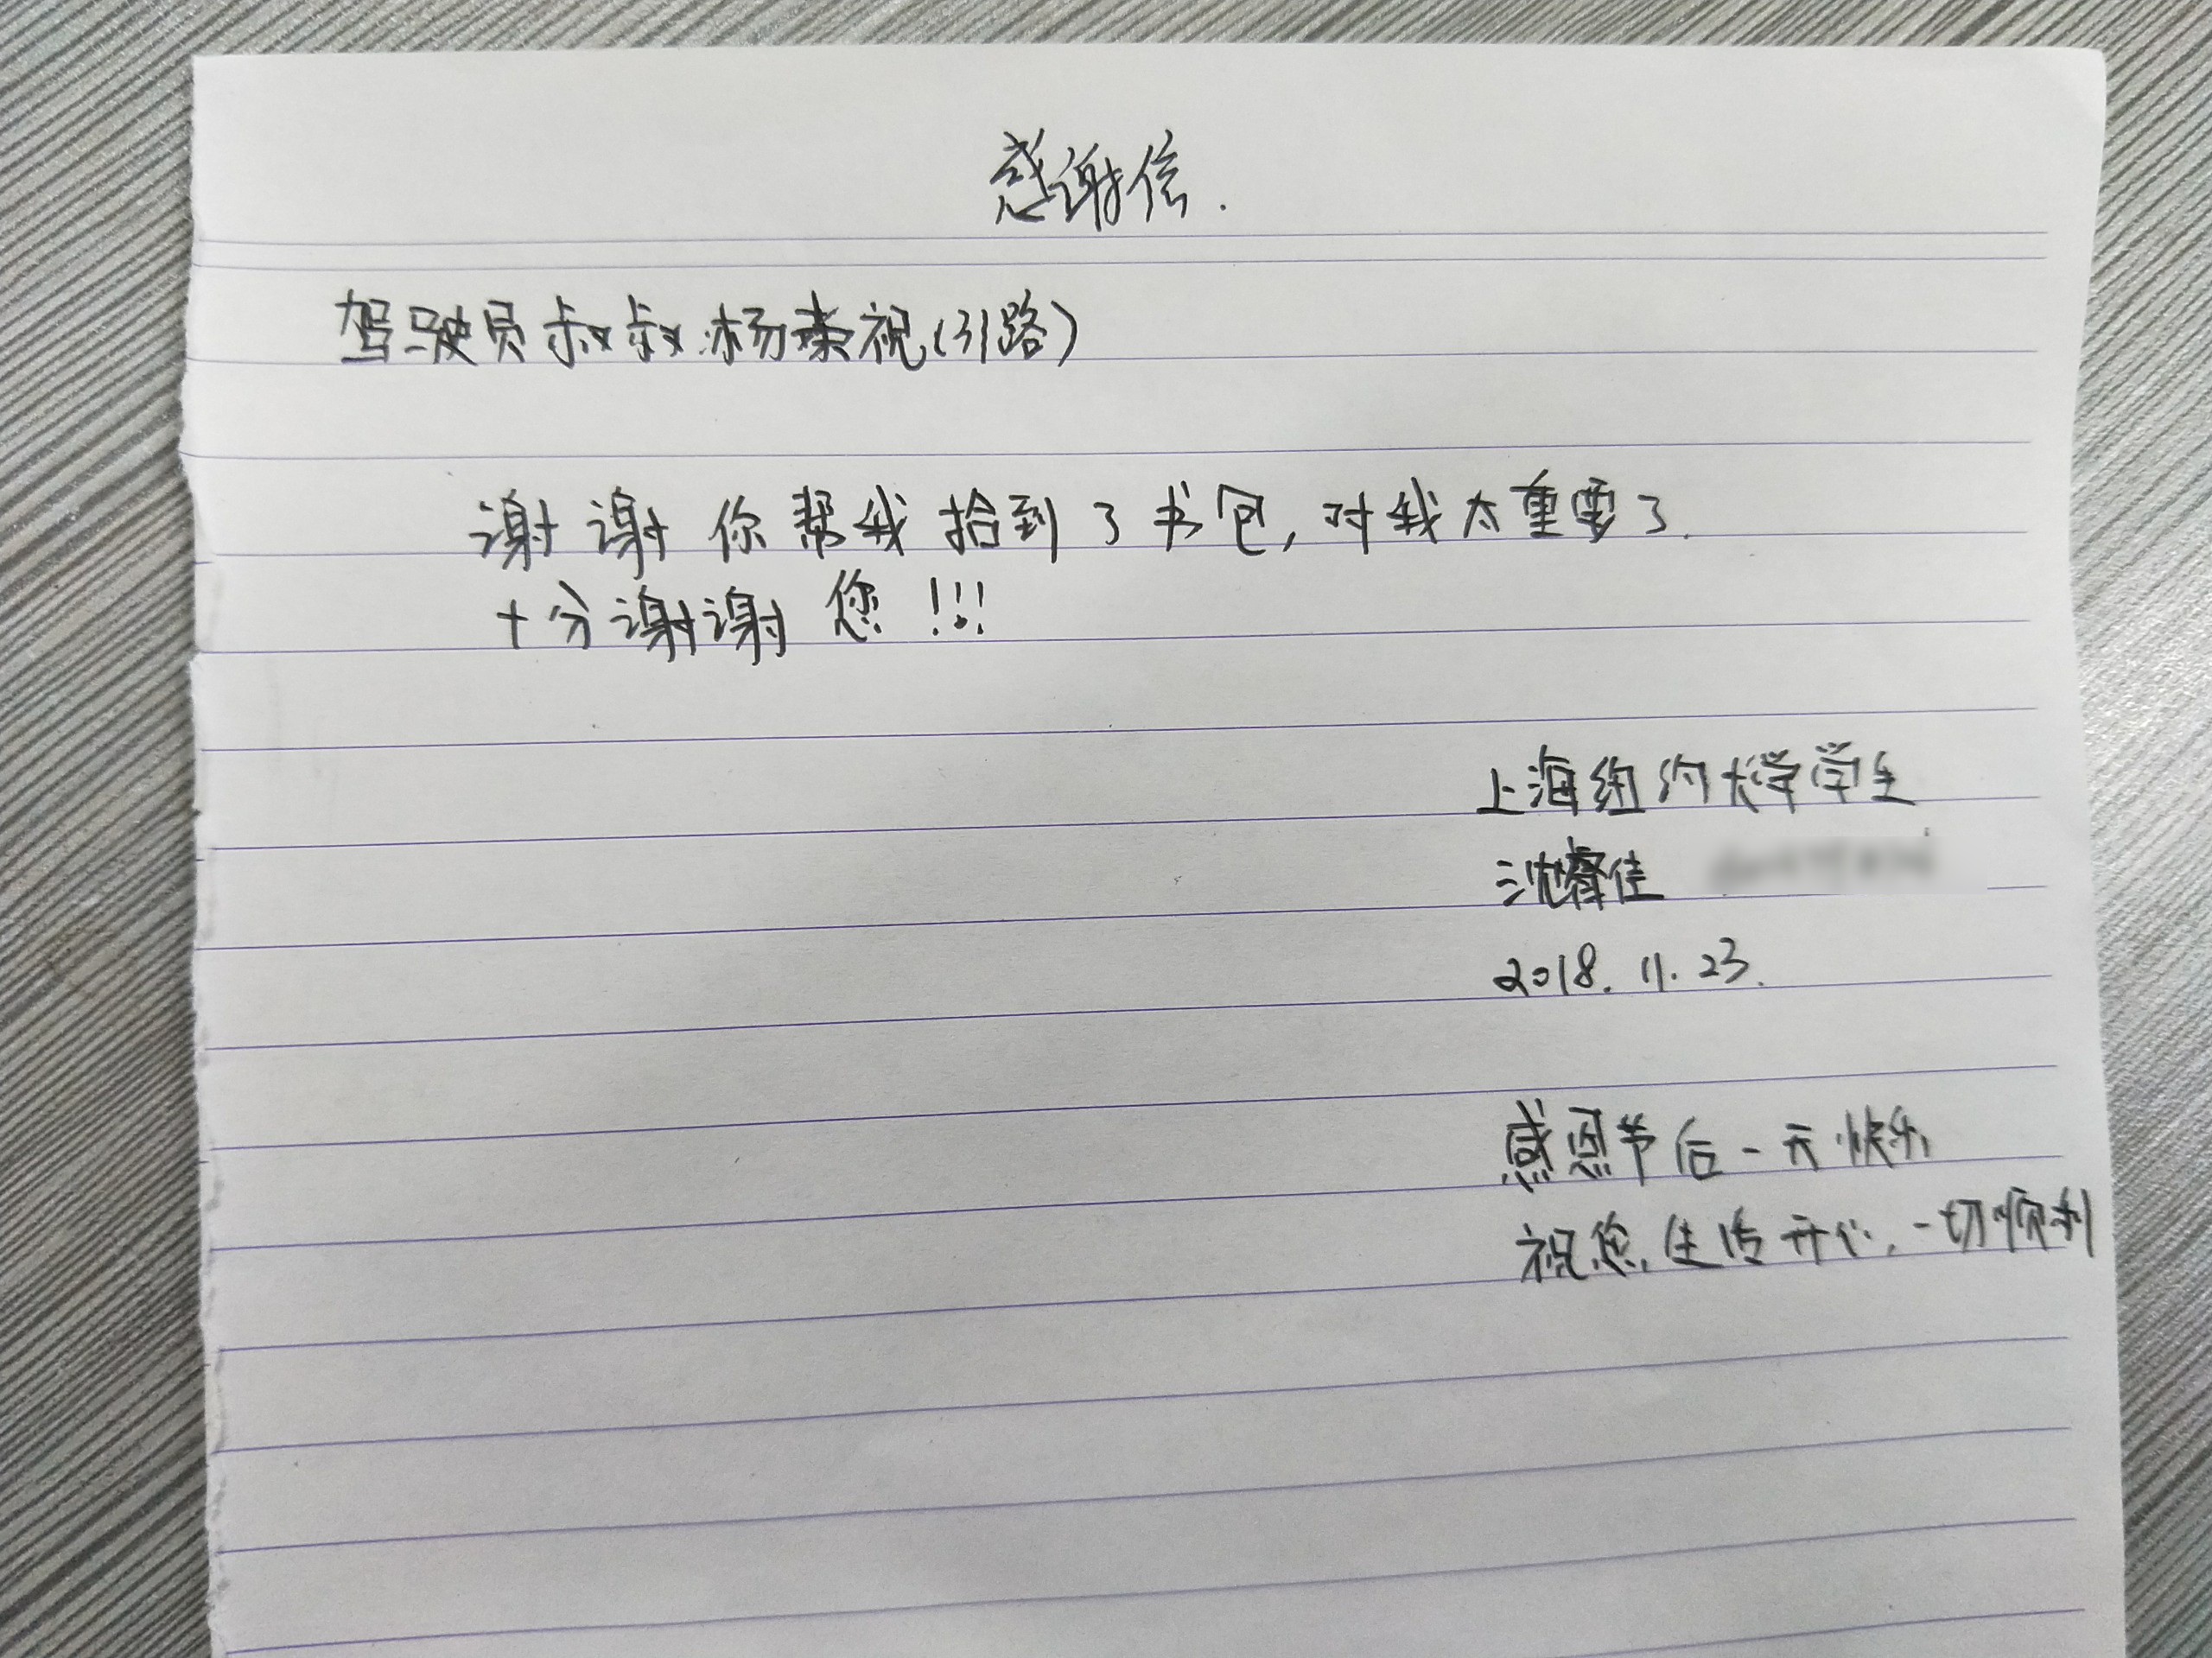 感谢信.
驾驶员叔叔 杨荣祝(31路)
谢谢你帮我拾到了书包,对我太重要了.
十分谢谢您!!!
上海纽约大学学生
沈睿佳
2018.11.23.
感恩节后一天快乐
祝您,生活开心,一切顺利